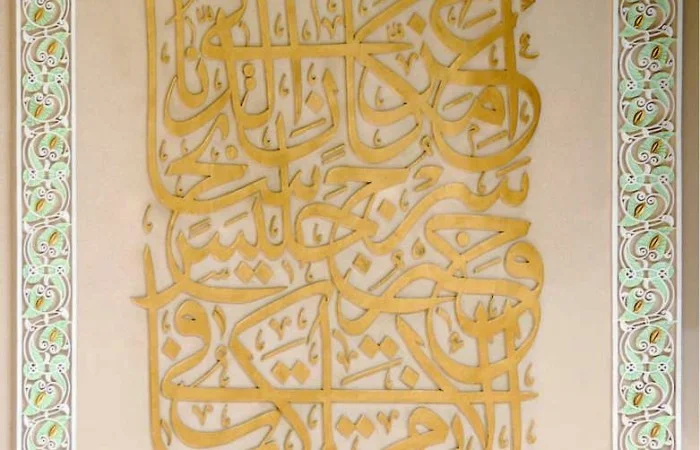 أعز مكان في الدنا
سرج سابح
وخير جليس
في الأنام كتاب